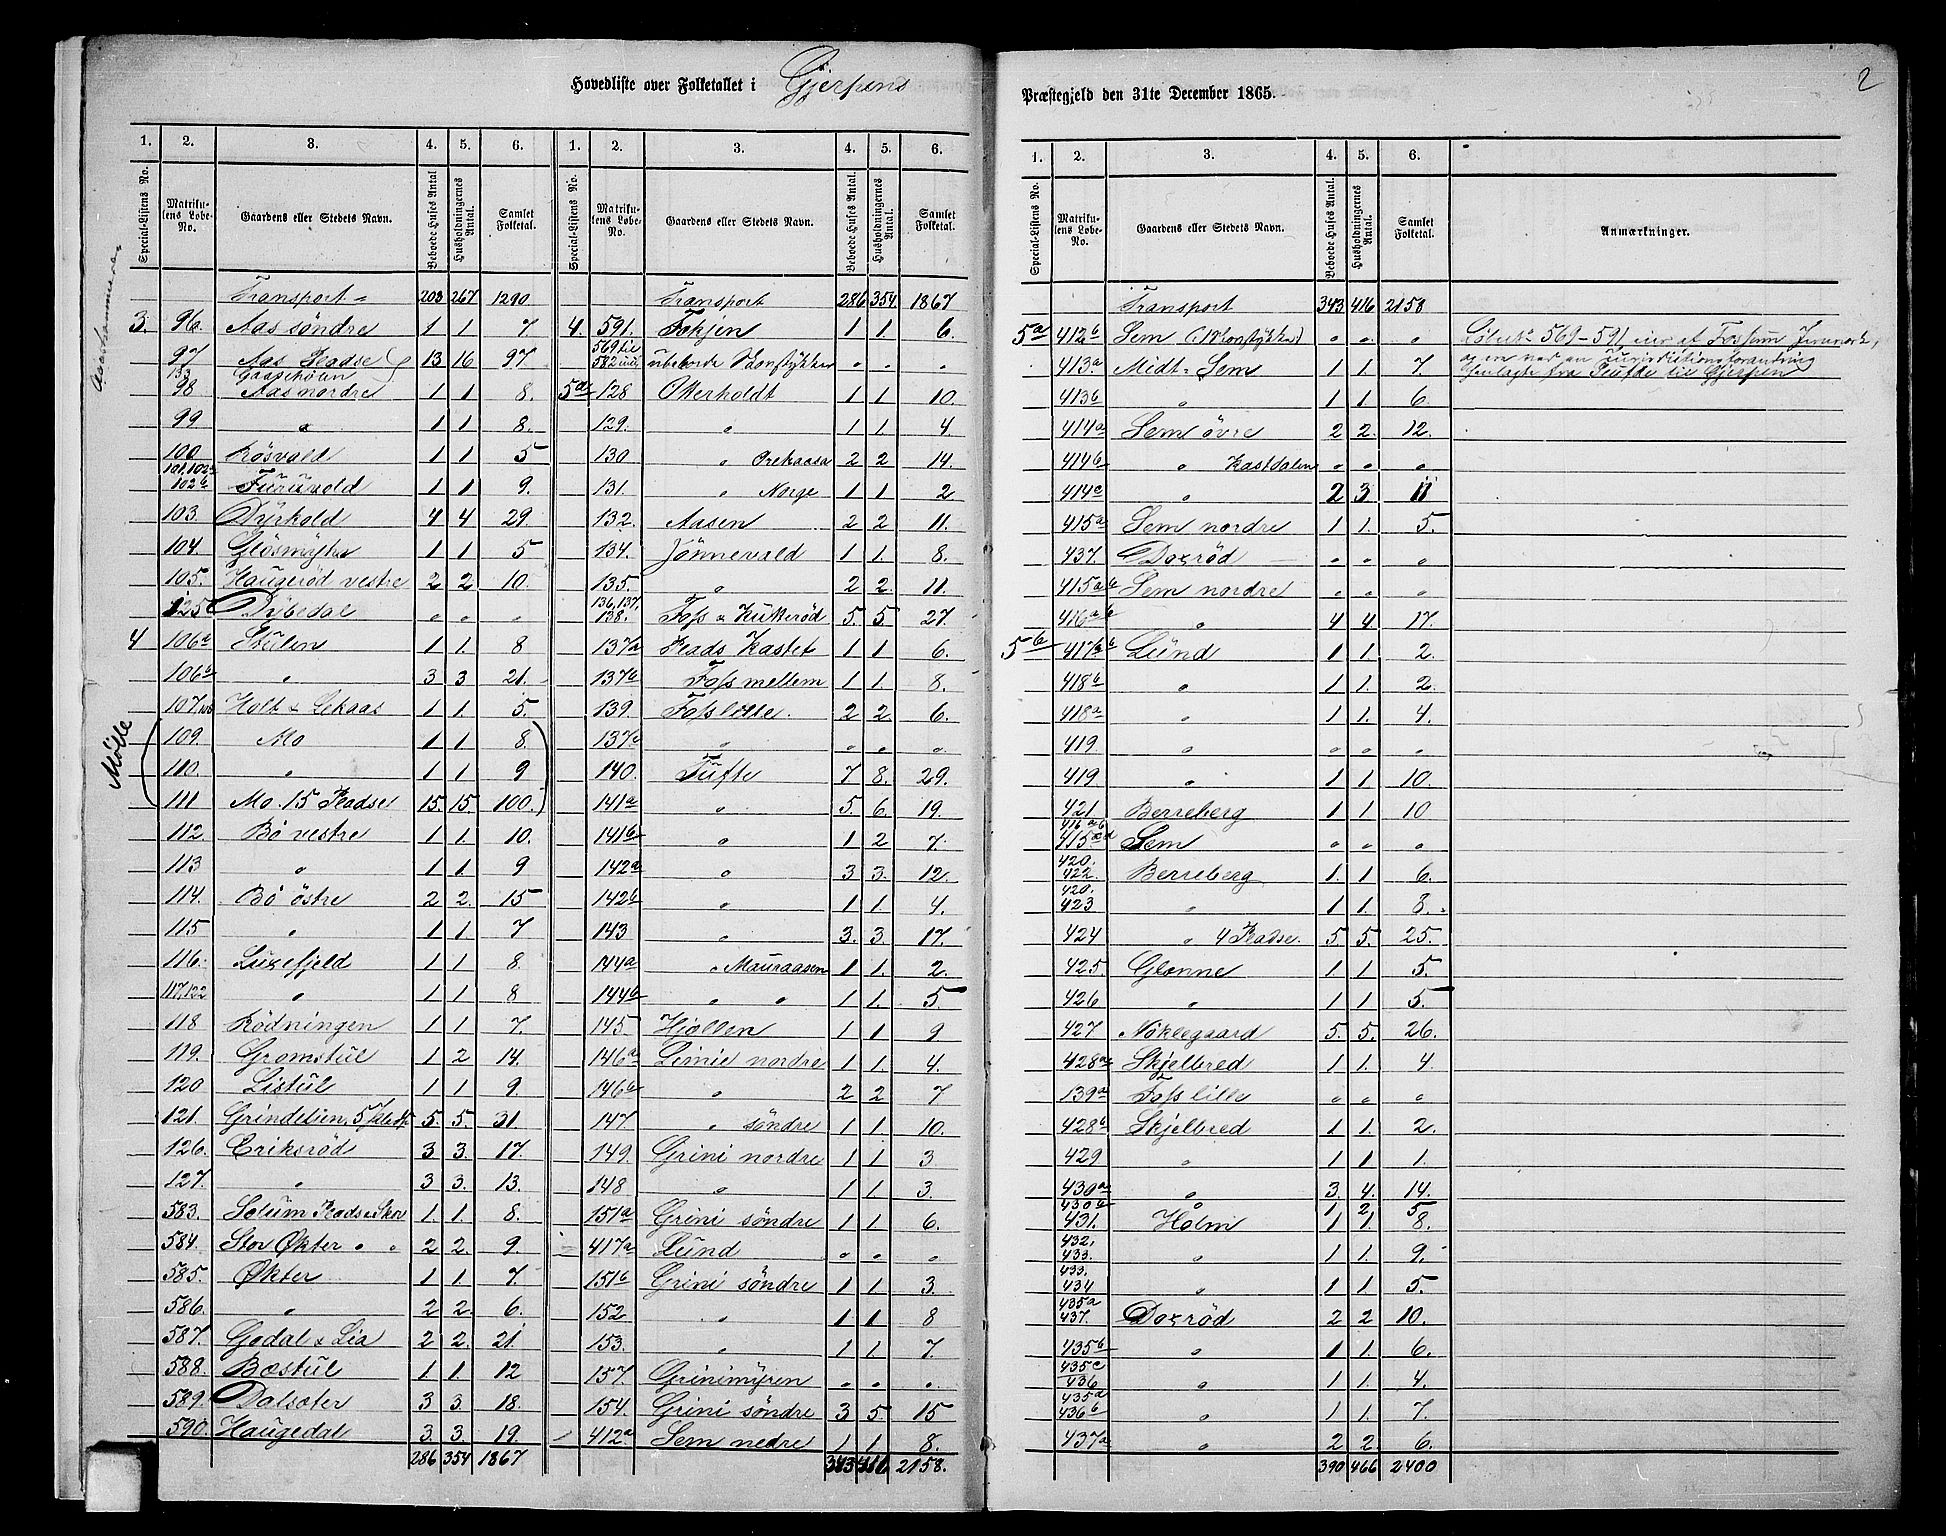 Hovedliste over Folketallet i Gjerpens
Præstegjeld den 31te December 1865.
2
1. 2. 3. 4. 5. 6. 1. 2. 3. 4. 5. 6.
Special-Listens No. Matrikulens Løbe-No. Gaardens eller Stedets Navn. Beboede Huses Antal Husholdningernes Antal. Samlet Folketal. Special-Listens No. Matrikulens Løbe-No. Gaardens eller Stedets Navn. Beboede Huses Antal. Husholdningernes Antal. Samlet Folketal.
Transport 203 267 1290
3. 96. Aas søndre 1 1 7
97 Aas Pladse 13 16 97
133
98 Aas nordre 1 1 8.
99 " 1 1 8.
100 Røsvald 1 1 5
101, 102a
102b Furuvold 1 1 9.
103. Dyrkold 4 4 29.
104. Gløsmyhr 1 1 5
105. Haugerød vestre 2 2 10.
125 Dybedal " " "
4 106a Stulen 1 1. 8
106b " 3 3 21.
107 Holt & Lekaas 1 1. 5.
Mølle
109. Mo 1 1 8.
110. " 1 1 9
111 Mo. 15 Pladse 15. 15. 100.
112. Bö vestre 1 1. 10.
113 " 1 1. 9
114. Bö östre 2 2. 15
115 " 1 1. 7
116. Luxefjeld 1 1 8.
117, 122 " 1 1 8
118 Rödningen 1 1 7.
119. Gromstul 1 2 14.
120 Listul 1 1 9.
121. Grindelien, 5 Pladse 5. 5. 31
126. Eriksröd 3 3. 17.
127. " 3 3. 13.
583. Solum Plads & Skov 1. 1. 8.
584. Stor Økter " " 2 2. 9.
585. Økter 1 1. 7.
586. " 2 2. 6.
587. Godal & Lia 2 2. 21.
588. Bøstul 1 1 12
589. Dalsæter 3 3. 18.
590. Haugedal 3. 3. 19.
286 354 1867
Transport 286 354 1867
4. 591. Fokjen 1 1. 6.
569 til
582 incl. ubeboede Skovstykker " " "
5a 128 Okerholdt 1 1. 10.
129. " 1 1. 4
130 " Orekaasa 2 2 14.
131. " Norge 1 1 2
132. Aasen 2 2 11.
134. Jönnevald 1 1. 8.
135. " 2 2 11.
136, 137,
138. Foss & Kukkeröd 5. 5. 27.
137a Plads Kastet 1 1. 6.
137b Foss mellem 1 1. 8.
139. Foss lille. 2 2. 6.
137a " " " "
140. Tufte 7 8. 29.
141a " 5. 6. 19.
141b " 1 2 7.
142a " 3 3. 12.
142b " 1 1. 4.
143 " 3. 3. 17.
144a " Mauraasen 1 1. 2.
144b " " 1 1. 5
145 Hjollen 1 1 9
146a Limie nordre 1 1. 4.
146b " 2 2 7
147 " söndre 1 1. 10.
149. Grini nordre 1 1 3
148 " 1 1 3.
151a Grini söndre 1 1 6.
417a Lund " " "
151b Grini söndre 1 1 3.
152 " 1 1 8
153. " 1 1. 7.
157. Grinimyren " " "
154. Grini söndre 3 5. 15
412a Sem nedre 1 1 8.
343 416 2158.
1. 2. 3. 4. 5. 6.
Special-Listens No. Matrikulens Løbe-No. Gaardens eller Stedets Navn. Beboede Huses Antal. Husholdningernes Antal. Samlet Folketal. Anmærkninger.
Transport 343 416 2158
5a 412b Sem (1 Skovstykke) " " "
413a Midt-Sem 1 1 7
413b " 1 1 6.
414a Sem övre 2 2. 12.
414b " Kastdalen " " "
414c " 2 3 11
415a Sem nordre 1 1. 5.
437. Doxröd " " "
415ab Sem nordre " " "
416ab " 4 4 17.
5b 417b Lund 1 1. 2.
418b " 1 1. 2.
418a " 1 1. 4.
419. " " " "
419 " 1 1 10.
421 Berreberg 1 1 10
416ab
415cd Sem " " "
420.
422. Berreberg 1. 1. 6.
420.
423 " 1 1. 8.
424 " 4 Pladse. 5. 5. 25.
425 Glenne 1 1 5.
426 " 1 1 5.
427 Nöklegaard 5. 5. 26.
428a Skjelbred 1 1. 4.
139a Foss lille " " "
428b Skjelbred 1 1. 2.
429 " 1 1 1.
430a " 3. 4. 14.
430b " 1 2 5
431. Holm 1 1 8.
432,
433. " 1 1. 9.
433.
434 " 1 1 5.
435a
437. Doxröd 2 2 10.
435b " 1 1. 6.
435c
436 " 1 1. 4.
435d
436b " 1 1. 7.
437a " 2 2. 6.
390 466 2400
569–591 af Fossum Jernværk,
fra til Gjerpen